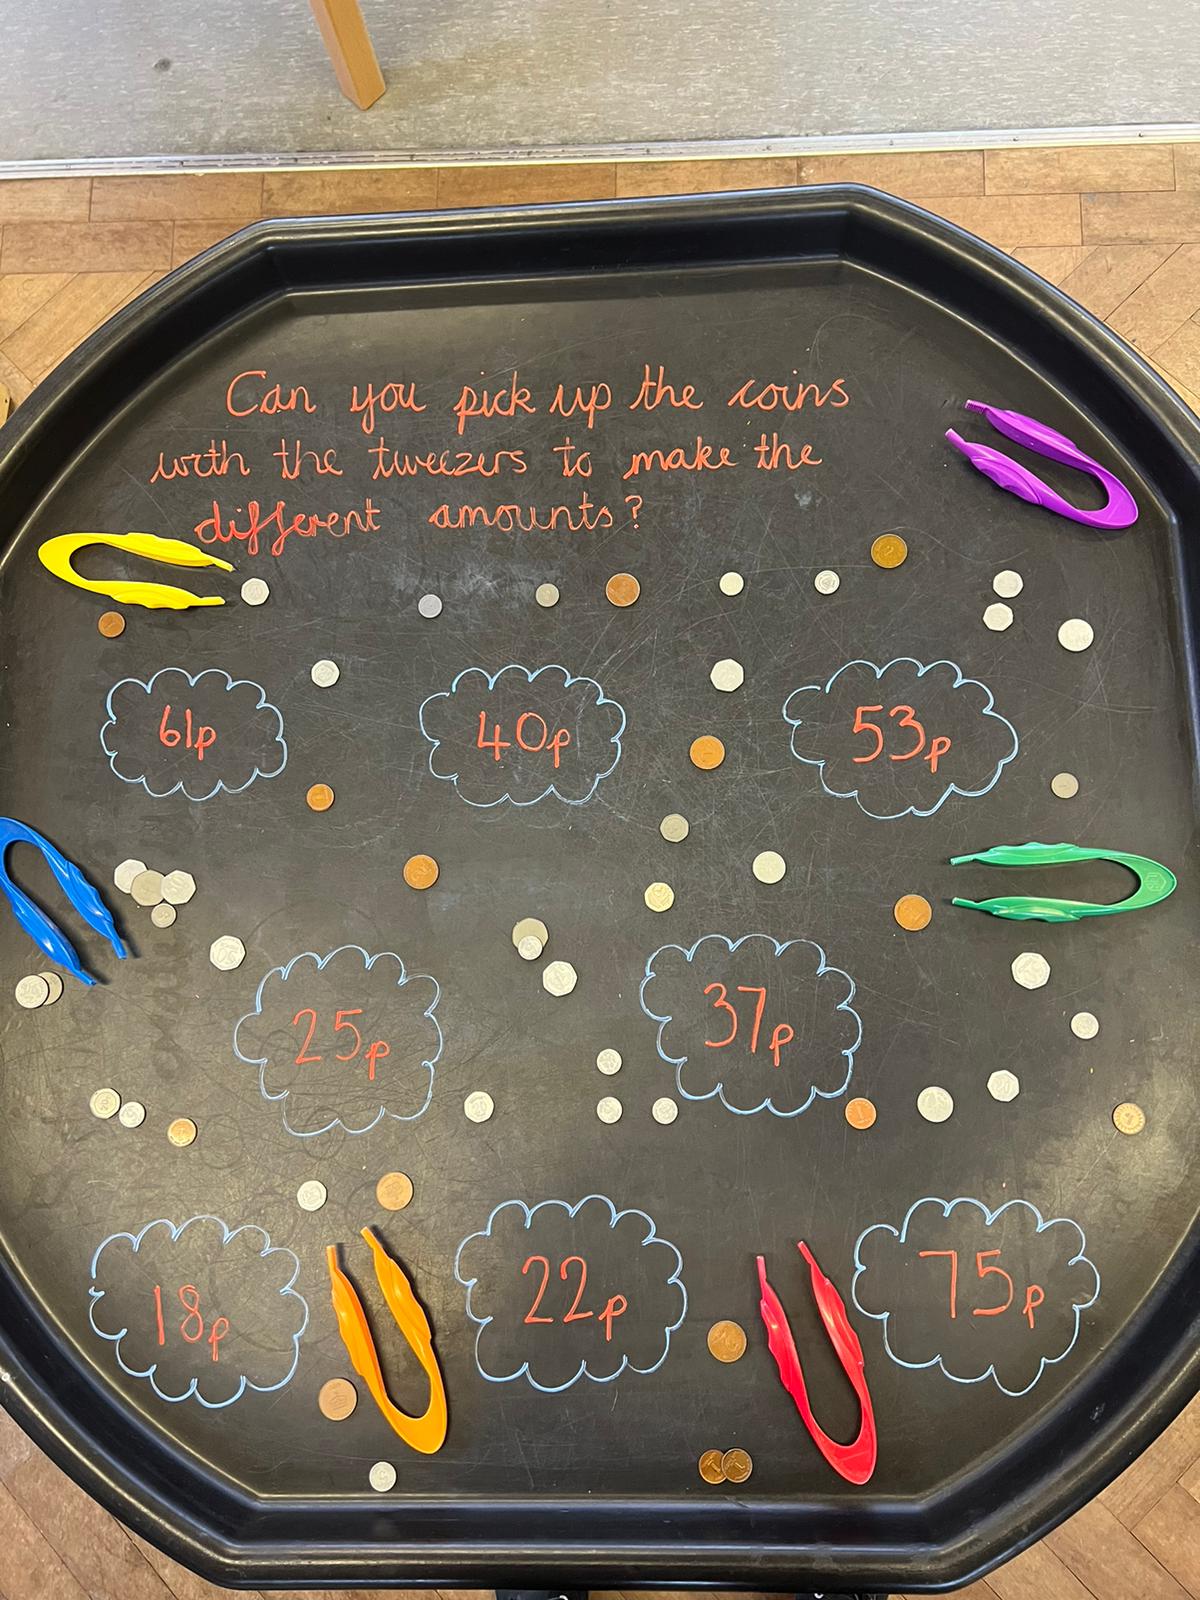 Can you pick up the coins
with the tweezers to make the
different amounts?
61p
40p
53p
25p
37p
18p
22p
75p